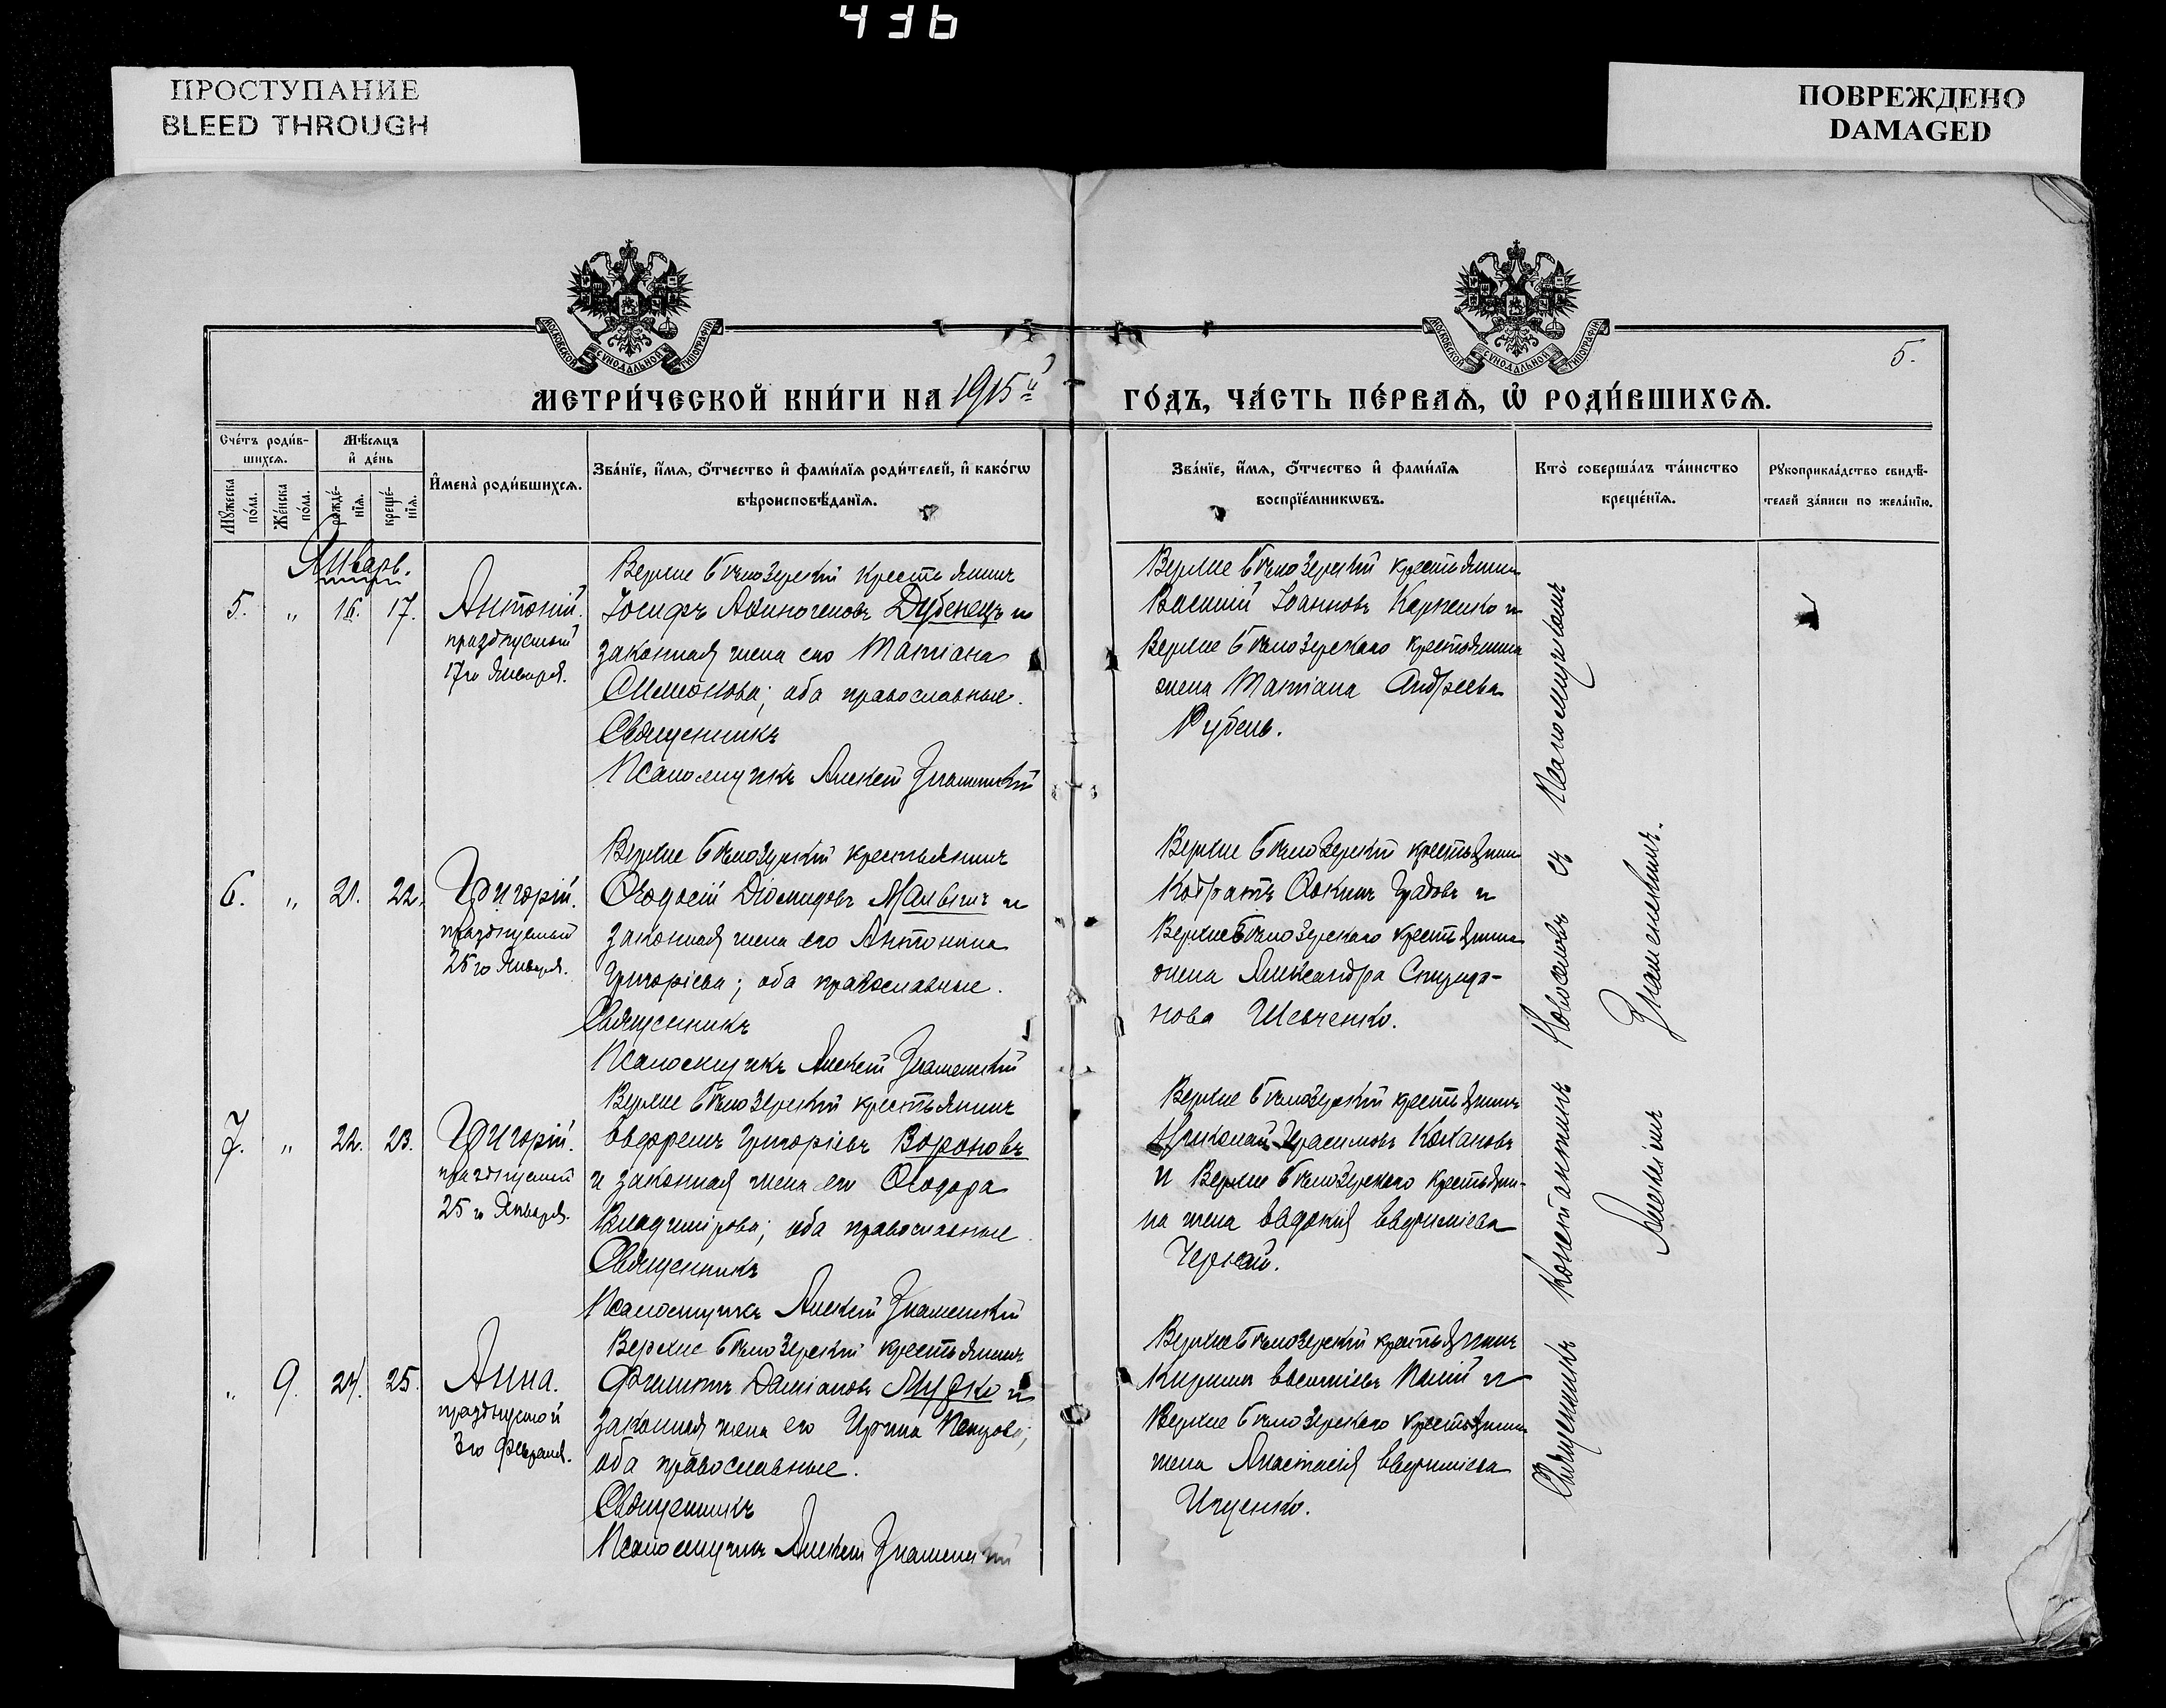 436
ПРОСТУПАНИЕ
BLEED THROUGH
ПОВРЕЖДЕНО
DAMAGED
МОСКОВСКОЙ СУНОДАЛЬНОЙ ТИПОГРАФІИ
МОСКОВСКОЙ СУНОДАЛЬНОЙ ТИПОГРАФІИ
5.
МЕТРИ́ЧЕСКОЙ КНИ́ГИ НА 1915й ГО́ДЪ, ЧА́СТЬ ПЕ́РВАѦ, Ѡ҆ РОДИ́ВШИХСѦ.
Сче́тъ роди́в-
шихсѧ.
Мѣ́сѧцъ
и҆ де́нь
Мꙋ́жеска
по́ла.
Же́нска
по́ла.
рожде́-
нїѧ.
креще́-
нїѧ.
И҆мена̀ роди́вшихсѧ.
Зва́нїе, и҆́мѧ, ѻ҆́тчество и҆ фами́лїѧ роди́телей, и҆ како́гѡ
вѣроисповѣ́данїѧ.
Зва́нїе, и҆́мѧ, ѻ҆́тчество и҆ фами́лїѧ
воспрїе́мникѡвъ.
Кто̀ соверша́лъ та́инство
креще́нїѧ.
Рꙋкоприкла́дство свидѣ́-
телей за́писи по жела́нїю.
Январь.
5. " 16. 17. Антоній.
празднуемый
17го Января.
Верхне Бѣлозерскій крестьянинъ
Іосифъ Аѳиногеновъ Дубенецъ и
законная жена его Татіана
Симеонова; оба православные.
Священникъ
Псаломщикъ Алексѣй Знаменскій
Верхне Бѣлозерскій крестьянинъ
Василій Іоанновъ Карпенко и
Верхне Бѣлозерскаго крестьянина
жена Татіана Андреева
Рубель.
6. " 21. 22. Григорій.
празднуемый
25го Января.
Верхне Бѣлозерскій крестьянинъ
Ѳеодосій Діомидовъ и
законная жена его Антонина
Григоріева; оба православные.
Священникъ
Псаломщикъ Алексѣй Знаменскій
Верхне Бѣлозерскій крестьянинъ
Кодратъ и
Верхне Бѣлозерскаго крестьянина
жена Александра Спиридо-
нова Шевченко.
7. " 22. 23. Григорій.
празднуемый
25го Января.
Верхне Бѣлозерскій крестьянинъ
Евфремъ Григоріевъ Вороновъ
и законная жена его Ѳеодора
Владимірова; оба православные
Священникъ
Псаломщикъ Алексѣй Знаменскій
Верхне Бѣлозерскій крестьянинъ
Николай Герасимовъ Кохановъ
и Верхне Бѣлозерскаго крестьяни-
на жена Евдокія Евфиміева
" 9. 24. 25. Анна.
празднуемой
3го Февраля.
Верхне Бѣлозерскій крестьянинъ
Филиппъ Даміановъ и
законная жена его Ирина Петрова;
оба православные.
Священникъ
Псаломщикъ Алексѣй Знаменскій
Верхне Бѣлозерскій крестьянинъ
Кириллъ и
Верхне Бѣлозерскаго крестьянина
жена Анастасія Евфиміева
Ищенко.
Священникъ Константинъ Новоселовъ съ Псаломщикомъ
Алексѣемъ Знаменскимъ.